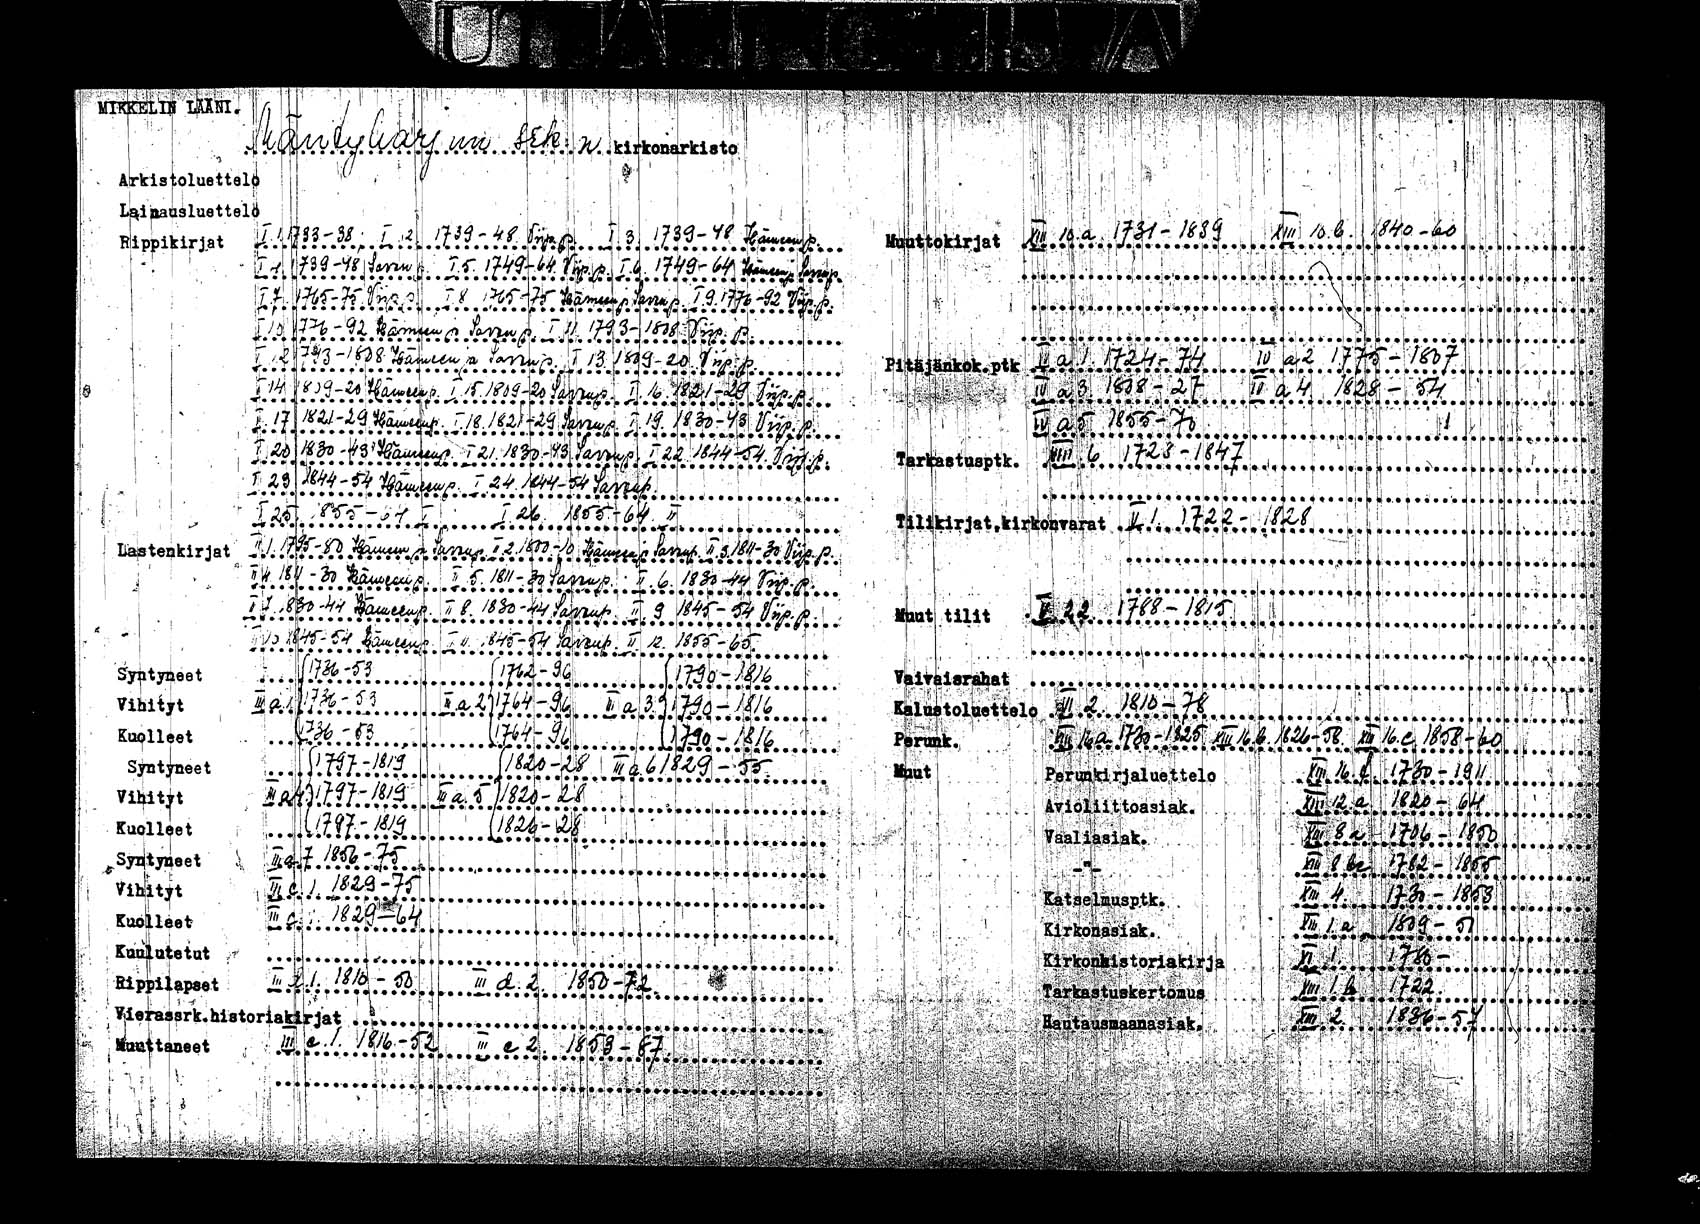 MIKKELIN LÄÄNI.
Mäntyharjun srk:n kirkonarkisto
Arkistoluettelo
Lainausluettelo
Rippikirjat I 1. 1733-38. I 2. 1739-48 Viip.p. I 3. 1739-48 Hämeenp.
I 4. 1739-48 Savonp. I 5. 1749-64 Viip.p. I 6. 1749-64 Hämeenp. Savonp.
I 7. 1765-75 Viip.p. I 8. 1765-75 Hämeenp. Savonp. I 9. 1776-92 Viip.p.
I 10 1776-92 Hämeenp. Savonp. I 11. 1793-1808 Viip.p.
I 12 1793-1808 Hämeenp. Savonp. I 13. 1809-20 Viip.p.
I 14 1809-20 Hämeenp. I 15. 1809-20 Savonp. I 16. 1821-29 Viip.p.
I 17 1821-29 Hämeenp. I 18. 1821-29 Savonp. I 19. 1830-43 Viip.p.
I 20 1830-43 Hämeenp. I 21. 1830-43 Savonp. I 22. 1844-54. Viip.p.
I 23 1844-54 Hämeenp. I 24. 1844-54 Savonp.
I 25. 1855-64 I I 26. 1855-64 II
Lastenkirjat II 1. 1795-80 Hämeenp. Savonp. II 2. 1800-10 Hämeenp. Savonp. II 3. 1811-30 Viip.p.
II 4. 1811-30 Hämeenp. II 5. 1811-30 Savonp. II 6. 1830-44 Viip.p.
II 7. 1830-44 Hämeenp. II 8. 1830-44 Savonp. II 9 1845-54 Viip.p.
II 10. 1845-54 Hämeenp. II 11. 1845-54 Savonp. II 12. 1855-65.
Syntyneet 1736-53 1762-96 1790-1816
Vihityt III a 1. 1736-53 III a 2 1764-96 III a 3. 1790-1816
Kuolleet 1736-53 1764-96 1790-1816
Syntyneet 1797-1819 1820-28 III a 6 1829-55.
Vihityt III a 4 1797-1819 III a. 5 1820-28
Kuolleet 1797-1819 1826-28
Syntyneet III a 7 1856-75
Vihityt III c. 1. 1829-75
Kuolleet III c. 1829-64
Kuulutetut
Rippilapset III d. 1. 1810-50 III d. 2. 1850-72.
Vierassrk.historiakirjat
Muuttaneet III e. 1. 1816-52 III e 2. 1853-87.
Muuttokirjat XIII 10.a. 1731-1839 XIII 10.b. 1840-60
Pitäjänkok.ptk IV a 1. 1724-74 IV a 2 1775-1807
IV a 3. 1808-27 IV a 4 1828-54
IV a 5 1855-70
Tarkastusptk. VIII 6 1723-1847
Tilikirjat,kirkonvarat V 1. 1722-1828
Muut tilit V 22. 1788-1815
Vaivaisrahat
Kalustoluettelo VI 2. 1810-78
Perunk. XIII 16a. 1730-1825 XIII 16.b. 1826-58. XIII 16.c 1858-60
Muut Perunkirjaluettelo XIII. 16. d. 1730-1911
Avioliittoasiak. XIII 12.a 1820-64
Vaaliasiak. XIII 8 a 1706-1850
-"- XIII 8 bc 1782-1855
Katselmusptk. XIII 4. 1730-1853
Kirkonasiak. XIII 1.a 1809-51
Kirkonhistoriakirja XI 1. 1780-
Tarkastuskertomus XIII 1.b 1722.
Hautausmaanasiak. XIII 2. 1836-57